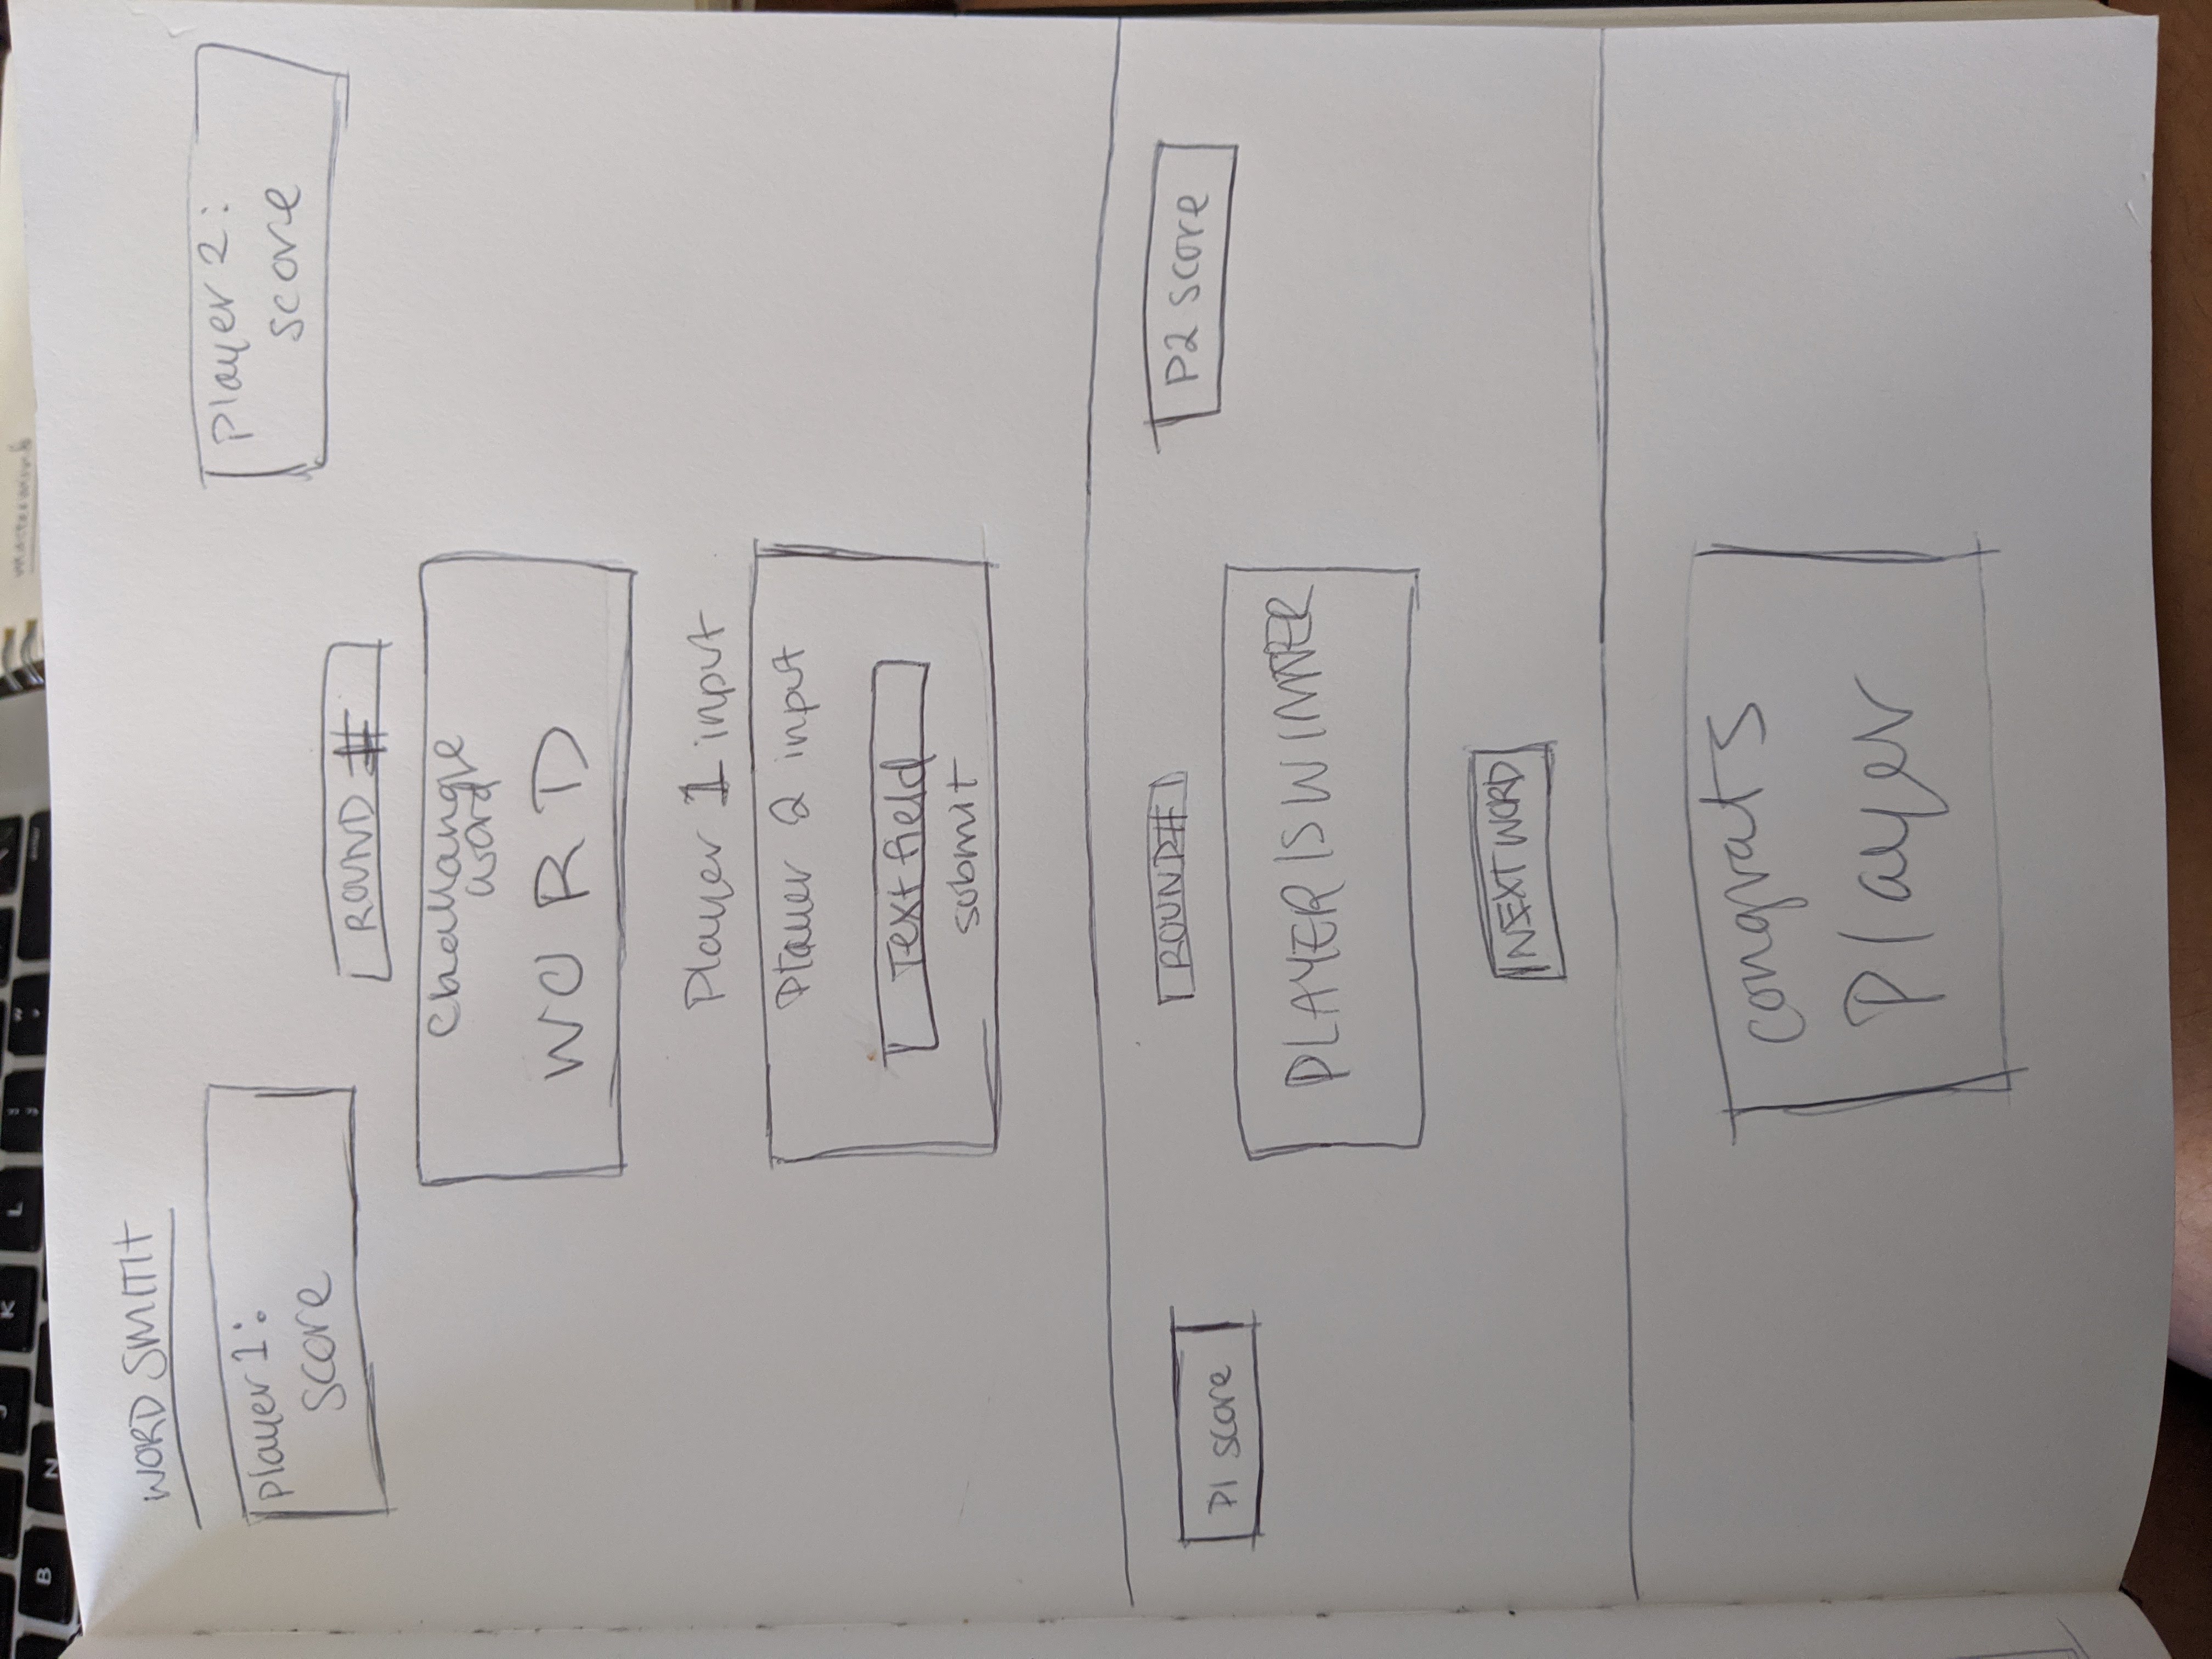 K
L
B
N
enter
WORD SMITH
Player 1:
score
Player 2:
score
ROUND #
Challange
word
WORD
Player 1 input
Player 2 input
Text field
submit
ROUND # 1
P1 score
P2 score
PLAYER IS WINNER
NEXT WORD
congrats
Player